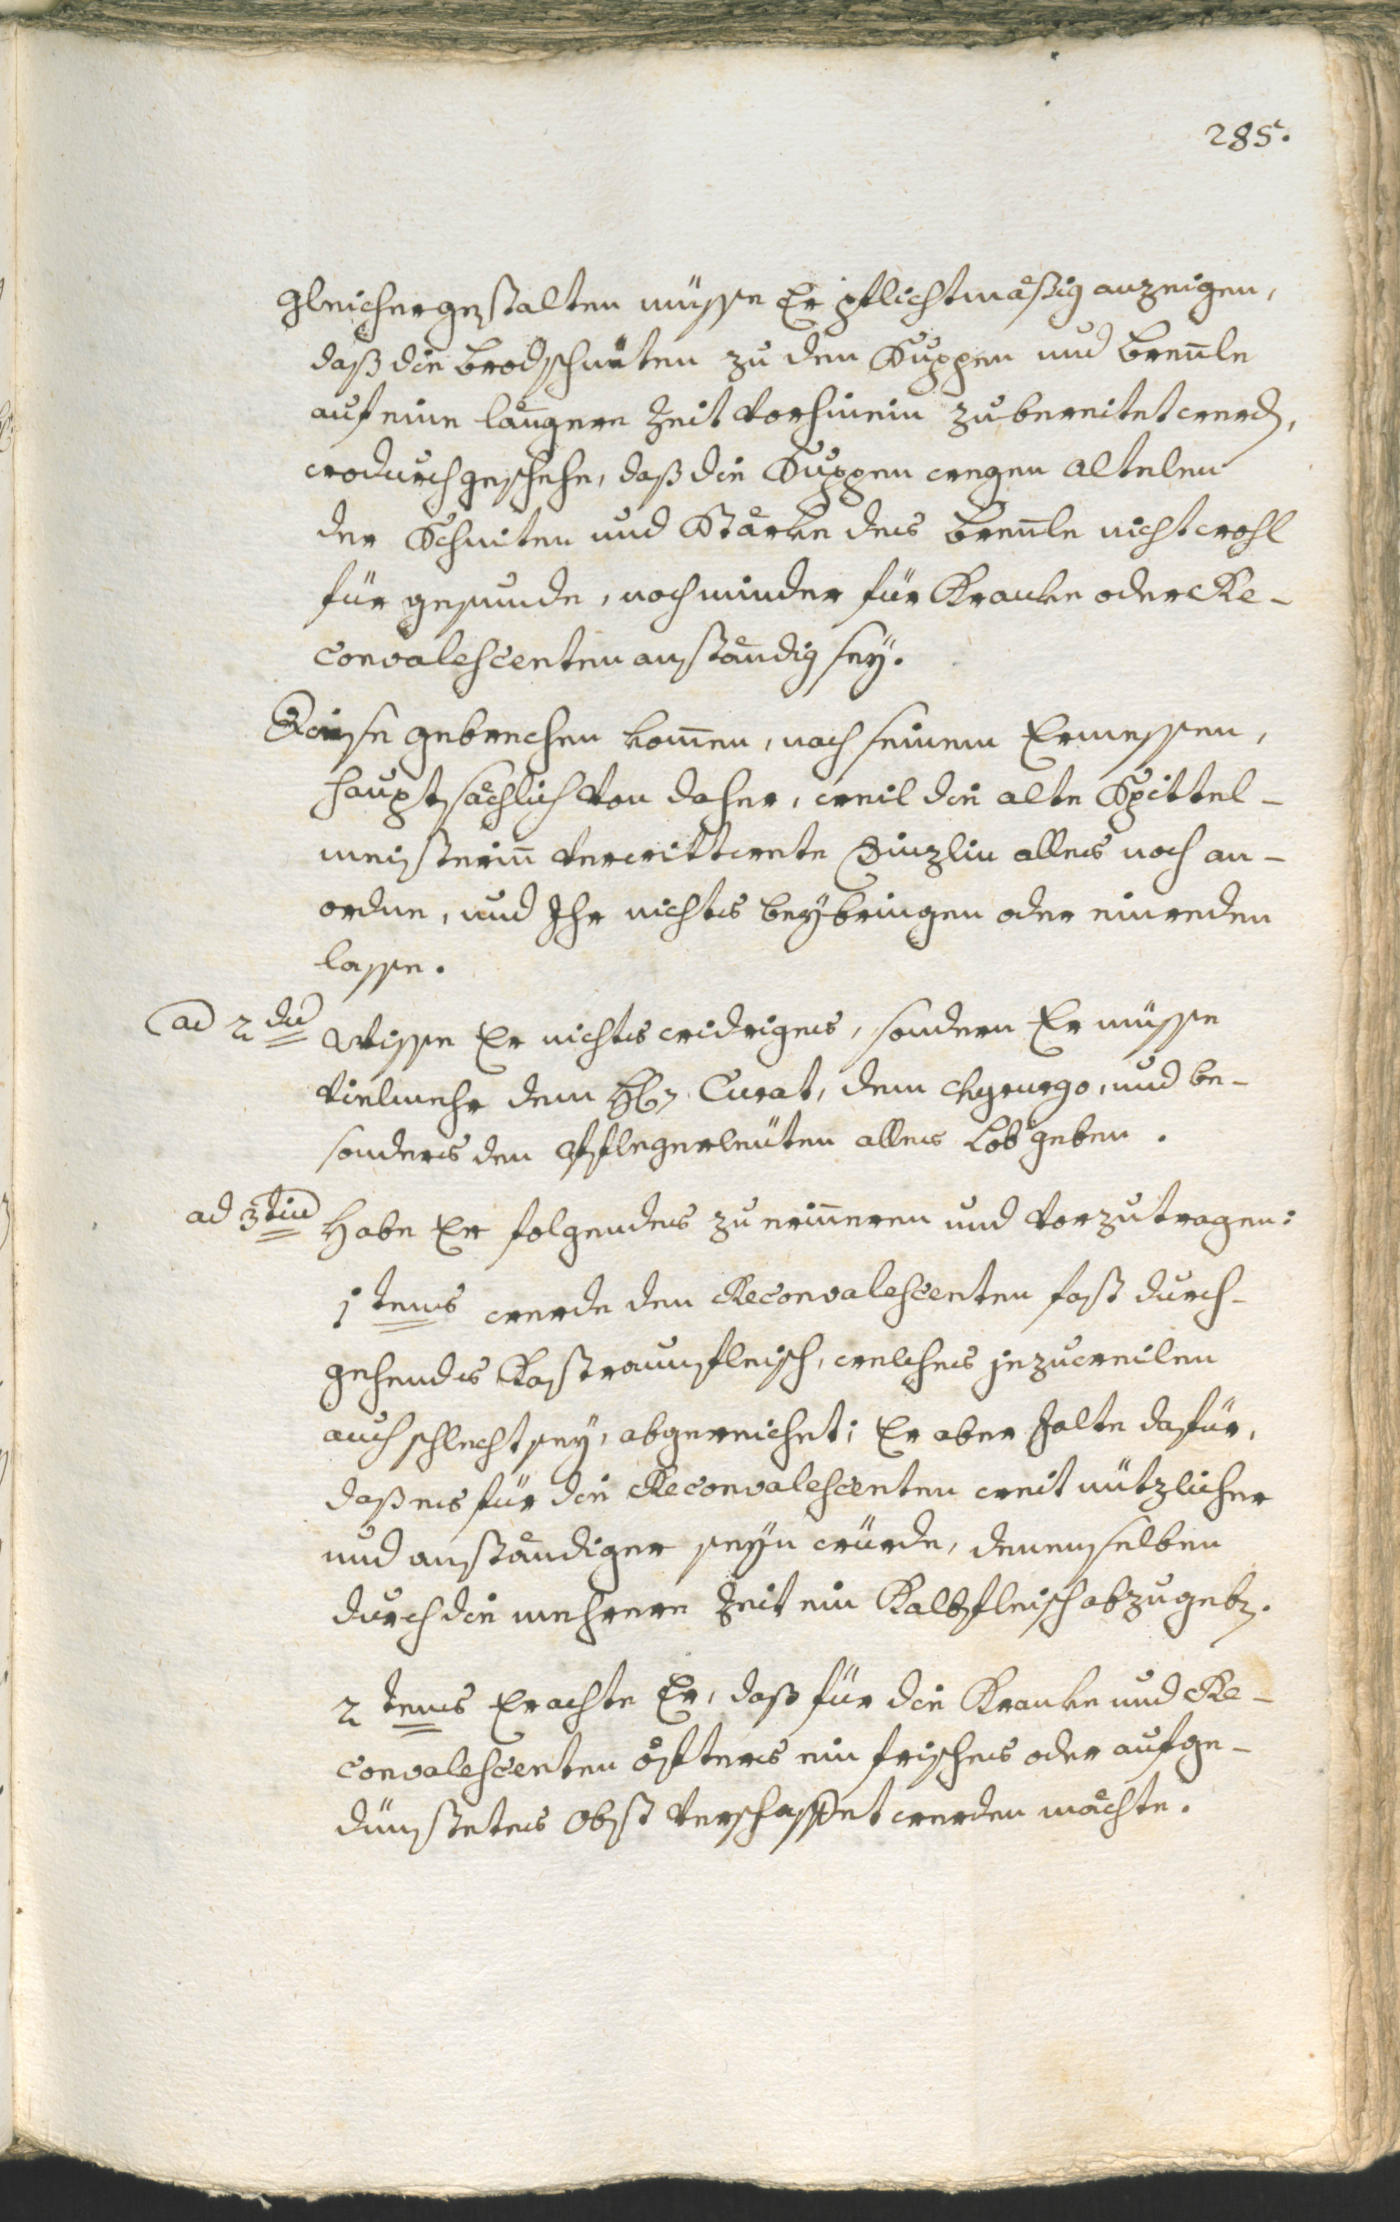 285.
Gleichergestalten müsse Er pflichtmäßig anzeigen,
daß die Brodschniten zu den Suppen und Brennle
auf eine längere Zeit vorhinein zubereitet werdn,
wodurch geschehe, daß die Suppen wegen altelen
der Schniten und Stärke des Brennle nicht wohl
für gesunde, noch minder für Kranke oder Re-
convalescenten anständig sey.
Diese gebrechen kommen, nach seinem Ermessen,
hauptsächlich von daher, weil die alte Spittel-
meisterinn verwittwete Dinzlin alles noch an-
ordne, und Ihr nichts beybringen oder einreden
lasse.
ad 2dū Wisse Er nichts widriges, sondern Er müsse
vielmehr dem Hr. Curat, dem Chyrurgo, und be-
sonders den Pflegerleüten alles Lob geben.
ad 3tiū Habe Er folgendes zu erinneren und vorzutragen:
1tens werde den Reconvalescenten fast durch-
gehends Kastraunfleisch, welches jezuweilen
auch schlecht sey, abgereichet; Er aber halte dafür,
daß es für die Reconvalescenten weit nützlicher
und anständiger seyn würde, denenselben
durch die mehrere Zeit ein Kalbfleisch abzugebn.
2tens Erachte Er, daß für die Kranke und Re-
convalescenten öfters ein frisches oder aufge-
dünstetes Obst verschaffet werden möchte.